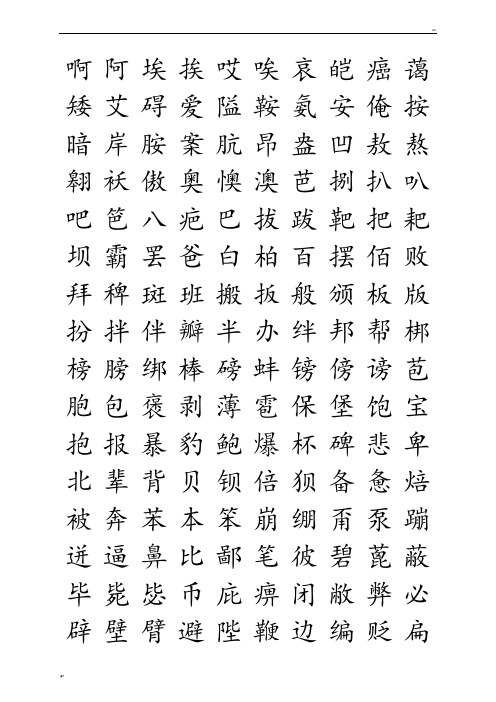 啊 阿 埃 挨 哎 唉 哀 皑 癌 蔼
矮 艾 碍 爱 隘 鞍 氨 安 俺 按
暗 岸 胺 案 肮 昂 盎 凹 敖 熬
翱 袄 傲 奥 懊 澳 芭 捌 扒 叭
吧 笆 八 疤 巴 拔 跋 靶 把 耙
坝 霸 罢 爸 白 柏 百 摆 佰 败
拜 稗 斑 班 搬 扳 般 颁 板 版
扮 拌 伴 瓣 半 办 绊 邦 帮 梆
榜 膀 绑 棒 磅 蚌 镑 傍 谤 苞
胞 包 褒 剥 薄 雹 保 堡 饱 宝
抱 报 暴 豹 鲍 爆 杯 碑 悲 卑
北 辈 背 贝 钡 倍 狈 备 惫 焙
被 奔 苯 本 笨 崩 绷 甭 泵 蹦
迸 逼 鼻 比 鄙 笔 彼 碧 蓖 蔽
毕 毙 毖 币 庇 痹 闭 敝 弊 必
辟 壁 臂 避 陛 鞭 边 编 贬 扁